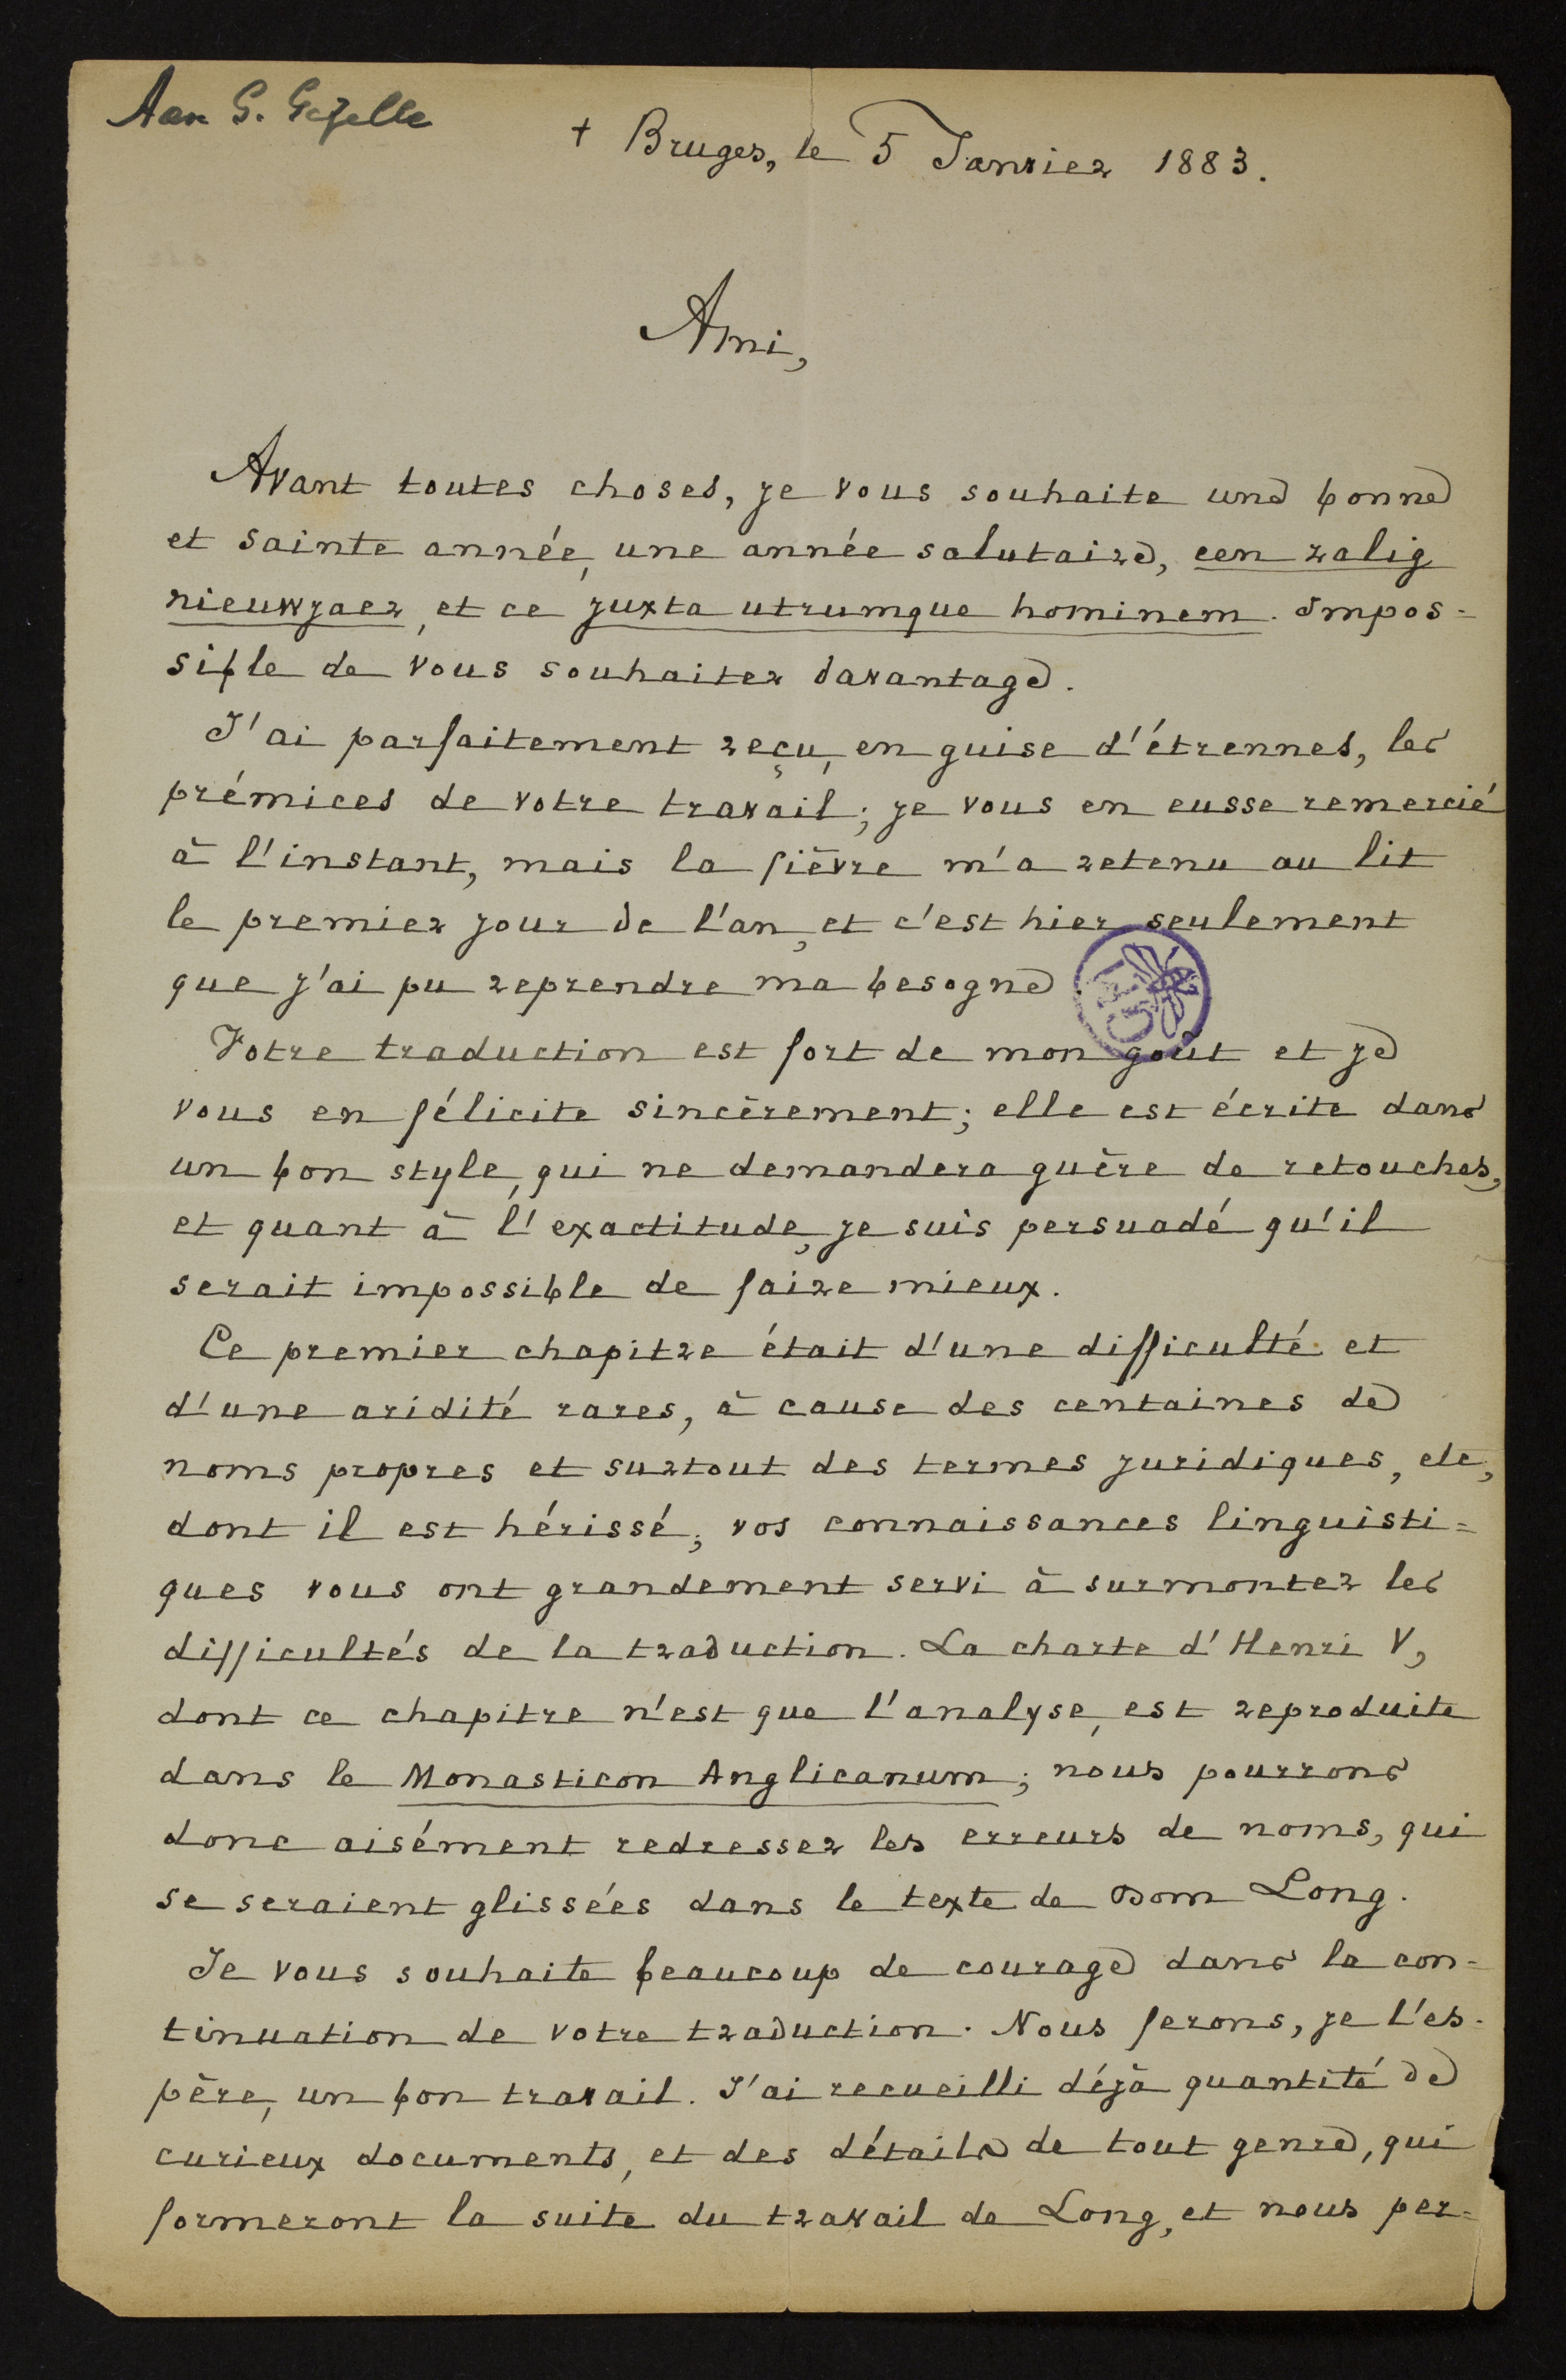 Aan G. Gezelle
+ Bruges, le 5 Janvier 1883.
Ami,
Avant toutes choses, je vous souhaite une bonne
et sainte année, une année salutaire, een zalig
nieuwjaer, et ce juxta utrumque hominem. Impos=
sible de vous souhaiter davantage.
J'ai parfaitement reçu, en guise d'étrennes, les
prémices de votre travail; je vous en eusse remercié
à l'instant, mais la fièvre m'a retenu au lit
le premier jour de l'an, et c'est hier seulement
que j'ai pu reprendre ma besogne.
Votre traduction est fort de mon goût et je
vous en félicite sincèrement; elle est écrite dans
un bon style, qui ne demandera guère de retouches,
et quant à l'exactitude, je suis persuadé qu'il
serait impossible de faire mieux.
Ce premier chapitre était d'une difficulté et
d'une aridité rares, à cause des centaines de
noms propres et surtout des termes juridiques, etc,
dont il est hérissé; vos connaissances linguisti=
ques vous ont grandement servi à surmonter les
difficultés de la traduction. La charte d'Henri V,
dont ce chapitre n'est que l'analyse, est reproduite
dans le Monasticon Anglicanum; nous pourrons
donc aisément redresser les erreurs de noms, qui
se seraient glissées dans le texte de Dom Long.
Je vous souhaite beaucoup de courage dans la con-
tinuation de votre traduction. Nous ferons, je l'es-
père, un bon travail. J'ai recueilli déjà quantité de
curieux documents, et des détails de tout genre, qui
formeront la suite du travail de Long, et nous per=